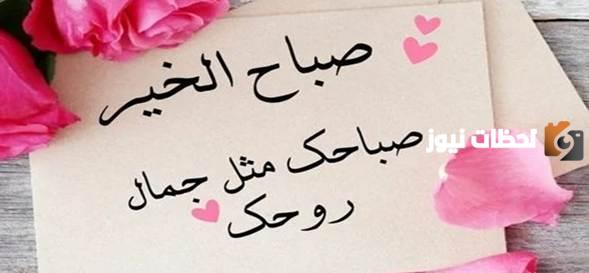 صباح الخير
صباحك مثل جمال
روحك
لحظات نيوز